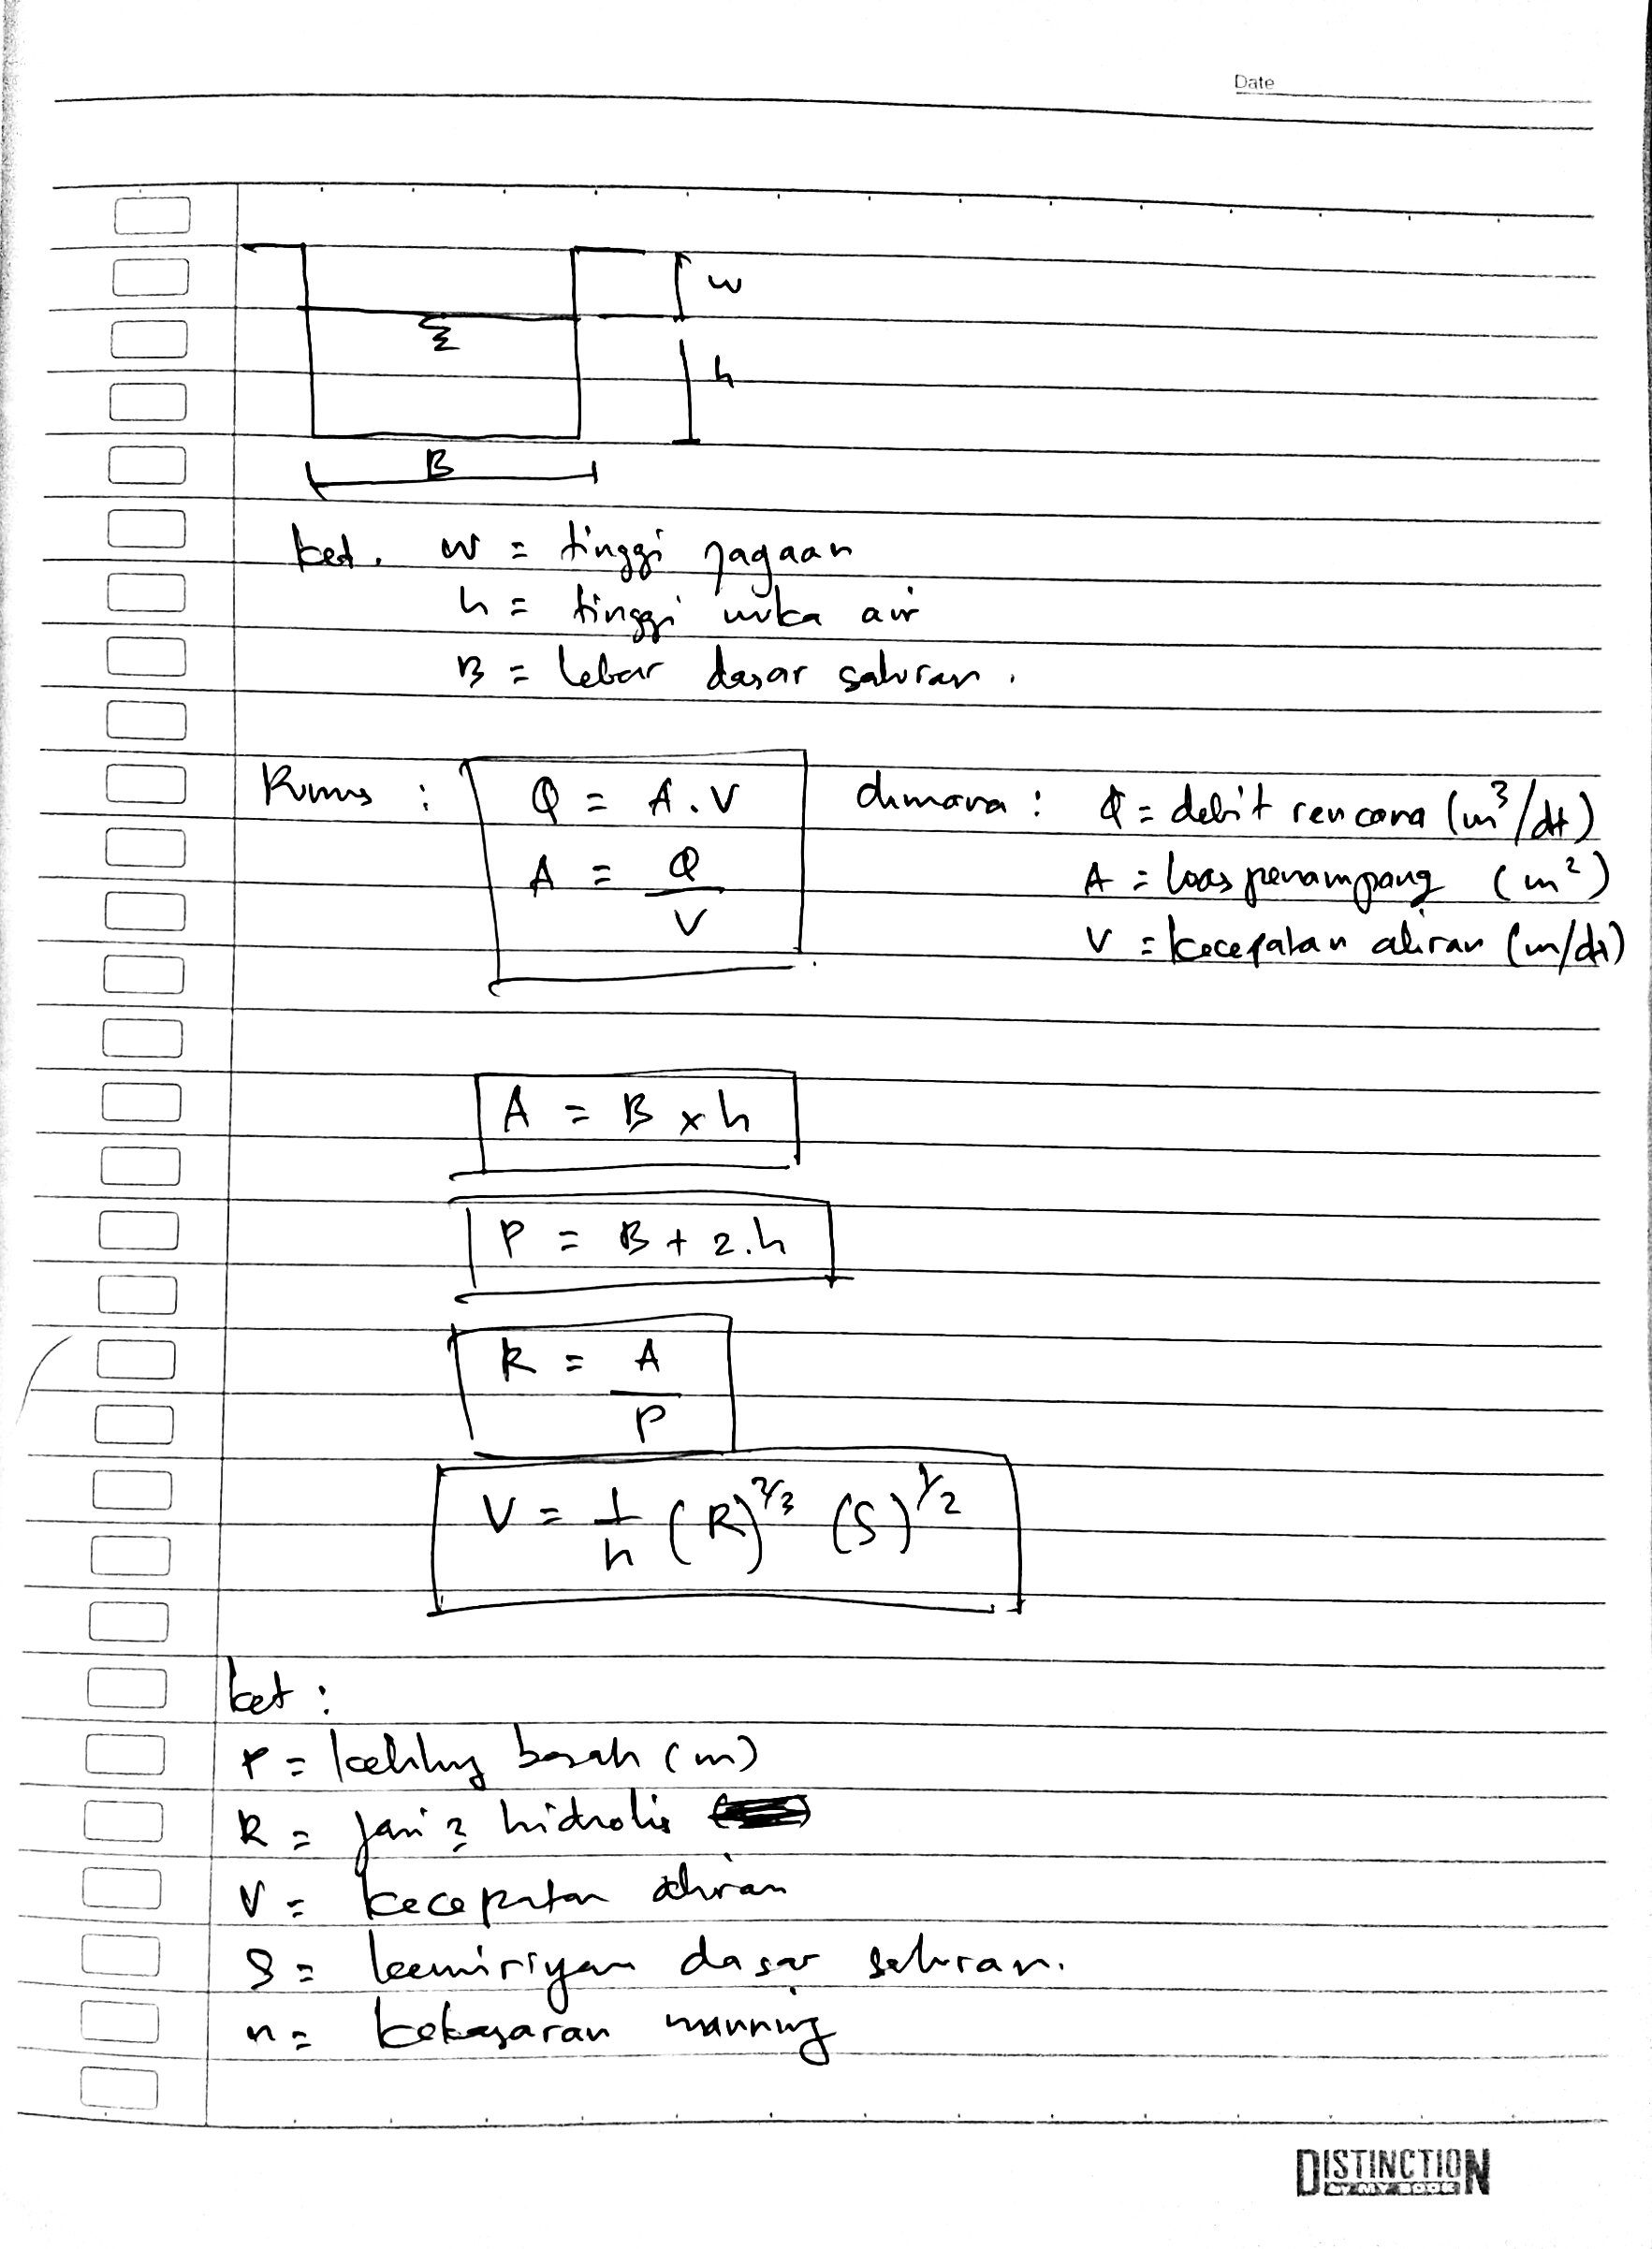 Date
w
h
B
ket. w = tinggi jagaan
h = tinggi muka air
B = lebar dasar saluran.
Rumus : Q = A . V dimana : Q = debit rencana (m³/dt)
A = Q / V A = luas penampang (m²)
V = kecepatan aliran (m/dt)
A = B x h
P = B + 2.h
R = A / P
V = 1/n (R)^2/3 (S)^1/2
ket :
P = keliling basah (m)
R = jari2 hidrolis
V = kecepatan aliran
S = kemiringan dasar saluran.
n = kekasaran manning
DISTINCTION
BY MY BOOK